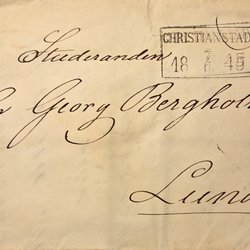 CHRISTIANSTAD
7
18 45
Studeranden
Georg Bergholt
Lund